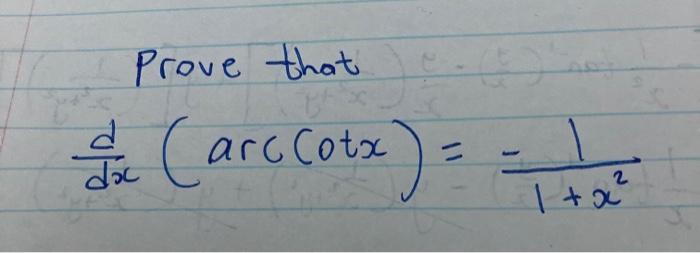 Prove that
d/dx (arc cotx) = - 1/1 + x²